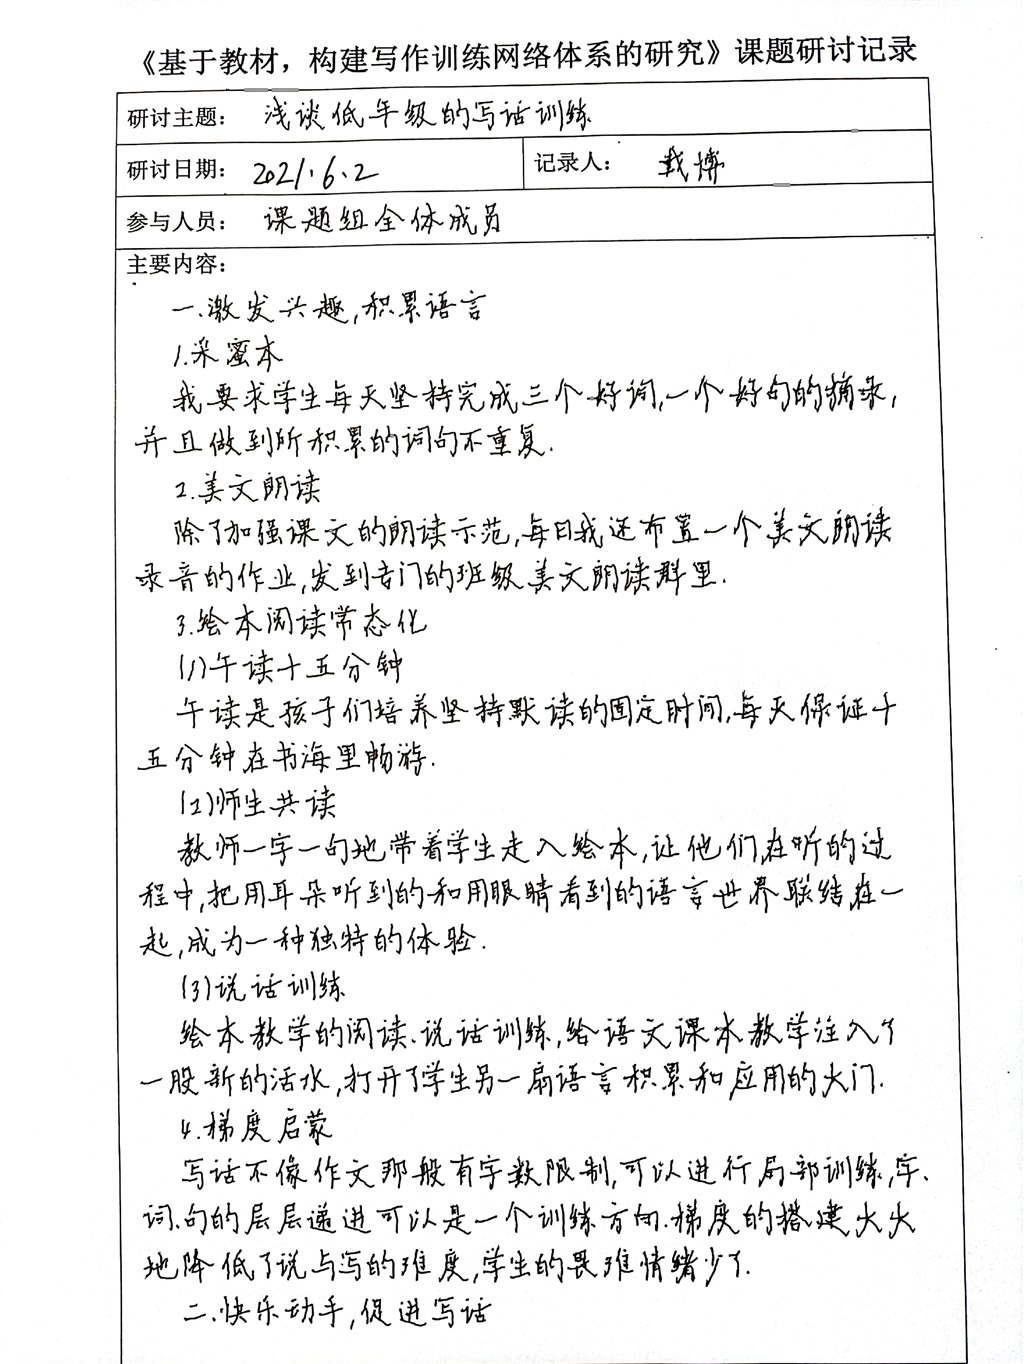 《基于教材，构建写作训练网络体系的研究》课题研讨记录
研讨主题： 浅谈低年级的写话训练
研讨日期： 2021.6.2 记录人： 戴博
参与人员： 课题组全体成员
主要内容：
一.激发兴趣,积累语言
1.采蜜本
我要求学生每天坚持完成三个好词,一个好句的摘录,
并且做到所积累的词句不重复.
2.美文朗读
除了加强课文的朗读示范,每日我还布置一个美文朗读
录音的作业,发到专门的班级美文朗读群里.
3.绘本阅读常态化
(1)午读十五分钟
午读是孩子们培养坚持默读的固定时间,每天保证十
五分钟在书海里畅游.
(2)师生共读
教师一字一句地带着学生走入绘本,让他们在听的过
程中,把用耳朵听到的和用眼睛看到的语言世界联结在一
起,成为一种独特的体验.
(3)说话训练
绘本教学的阅读、说话训练,给语文课本教学注入了
一股新的活水,打开了学生另一扇语言积累和应用的大门.
4.梯度启蒙
写话不像作文那般有字数限制,可以进行局部训练,字、
词、句的层层递进可以是一个训练方向.梯度的搭建大大
地降低了说与写的难度,学生的畏难情绪少了.
二.快乐动手,促进写话